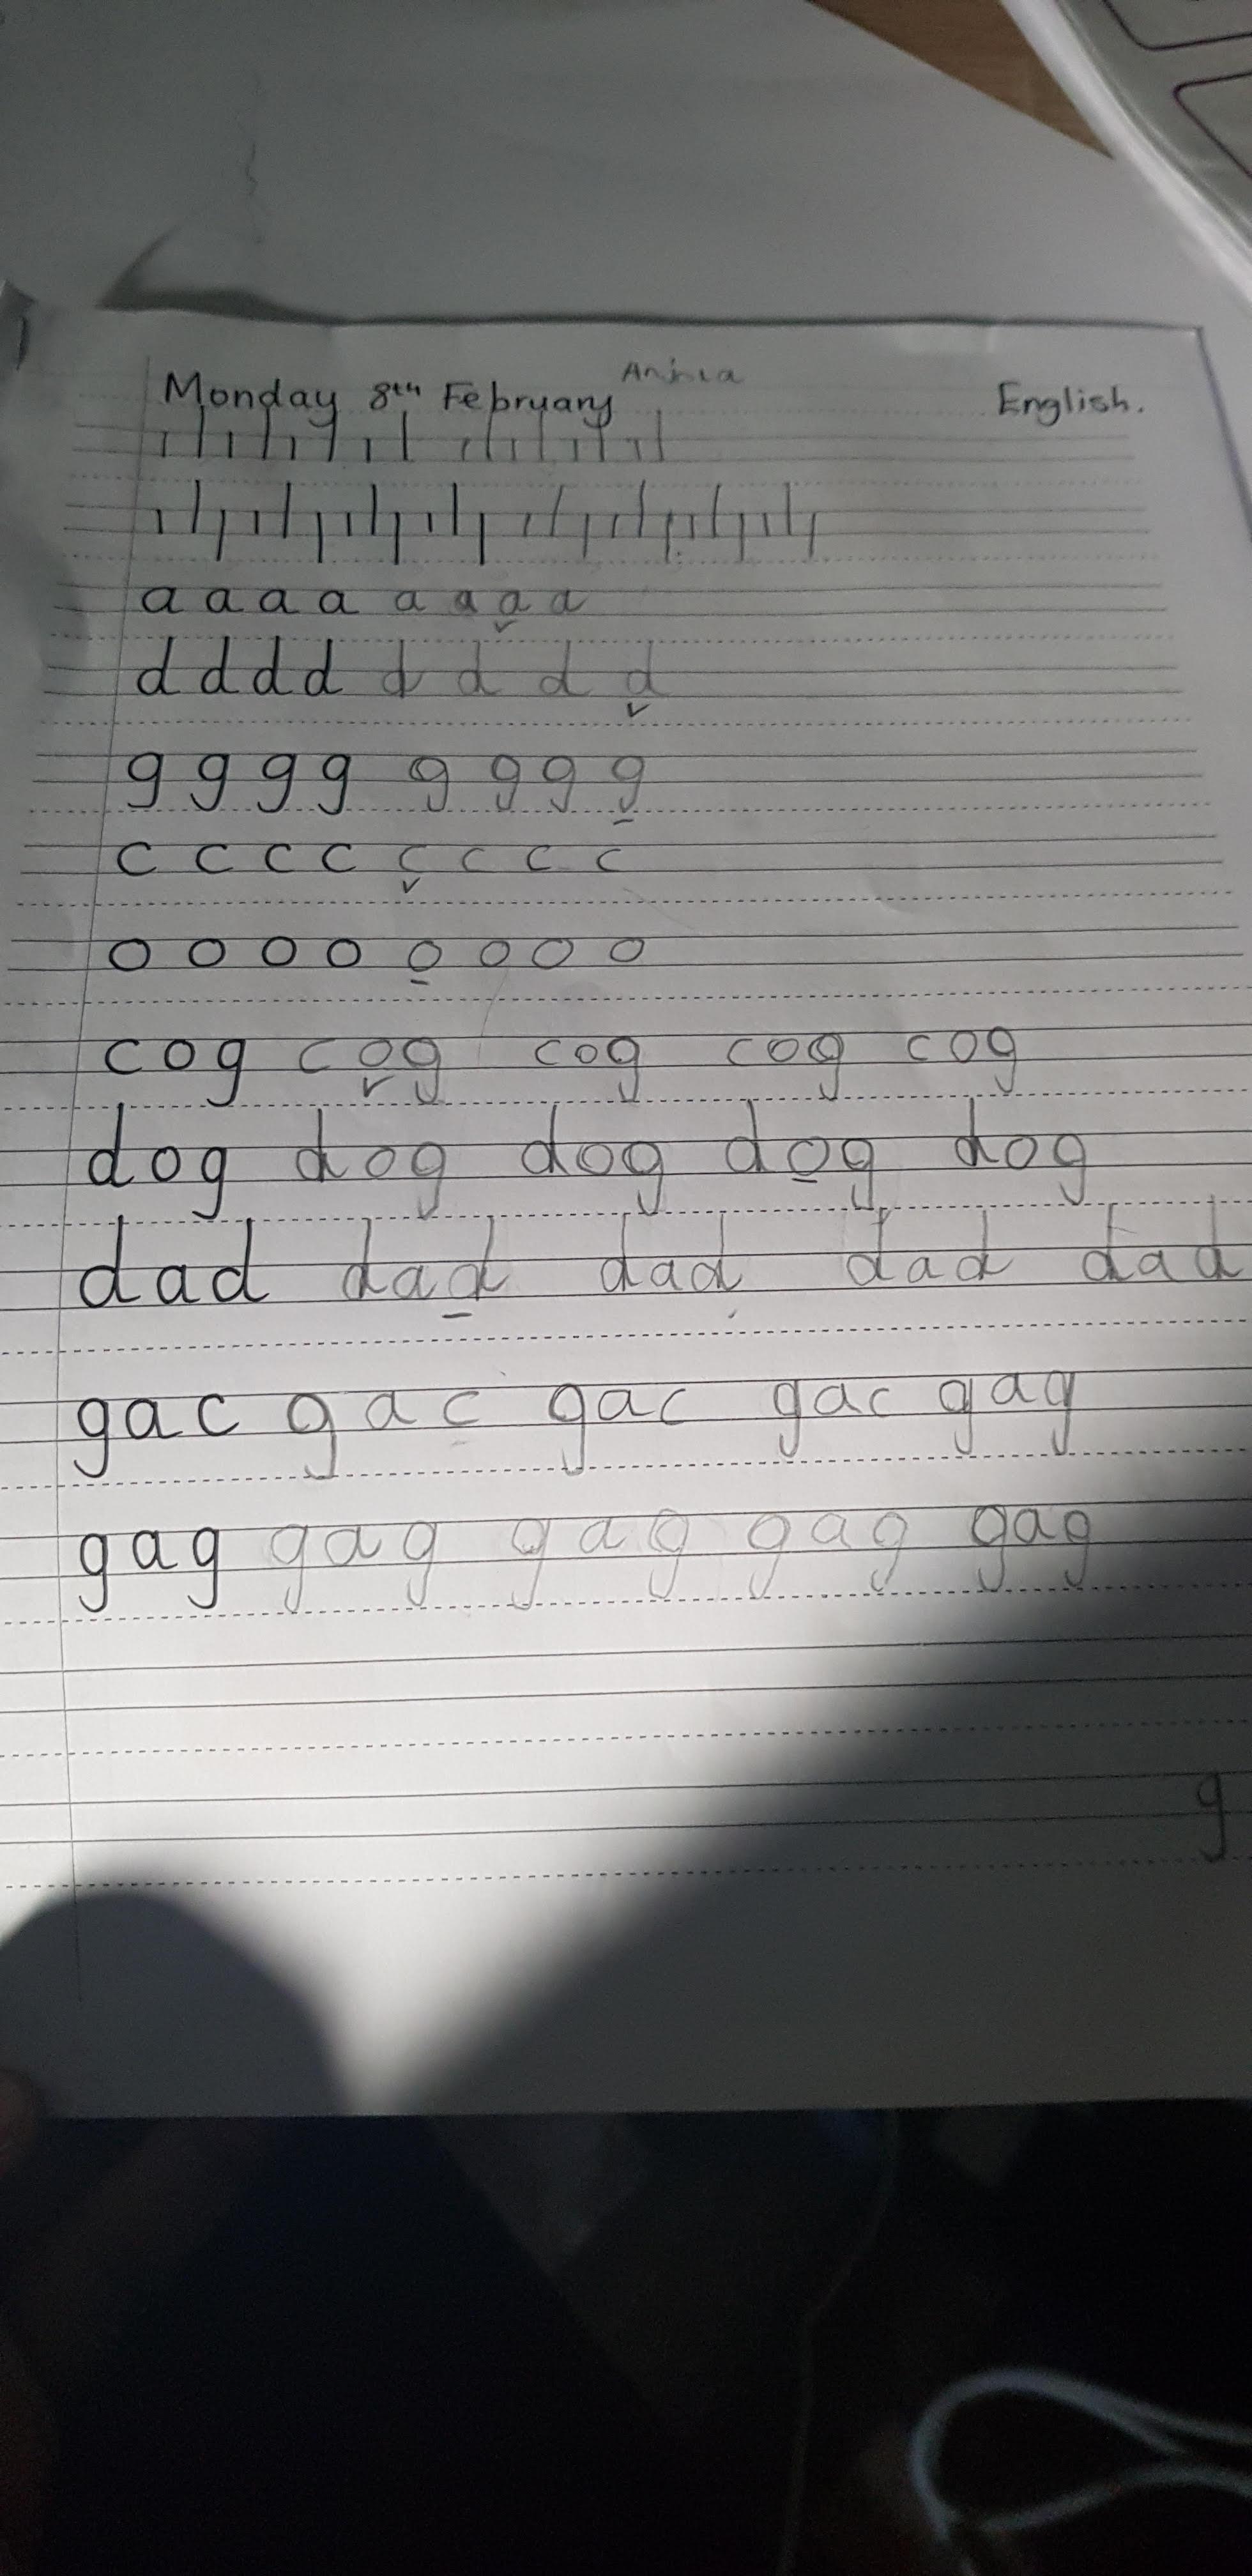 Monday 8th February English.
a a a a a a a a
d d d d d d d d
g g g g g g g g
c c c c c c c c
o o o o o o o o
cog cog cog cog cog
dog dog dog dog dog
dad dad dad dad dad
gac gac gac gac gag
gag gag gag gag gag
g